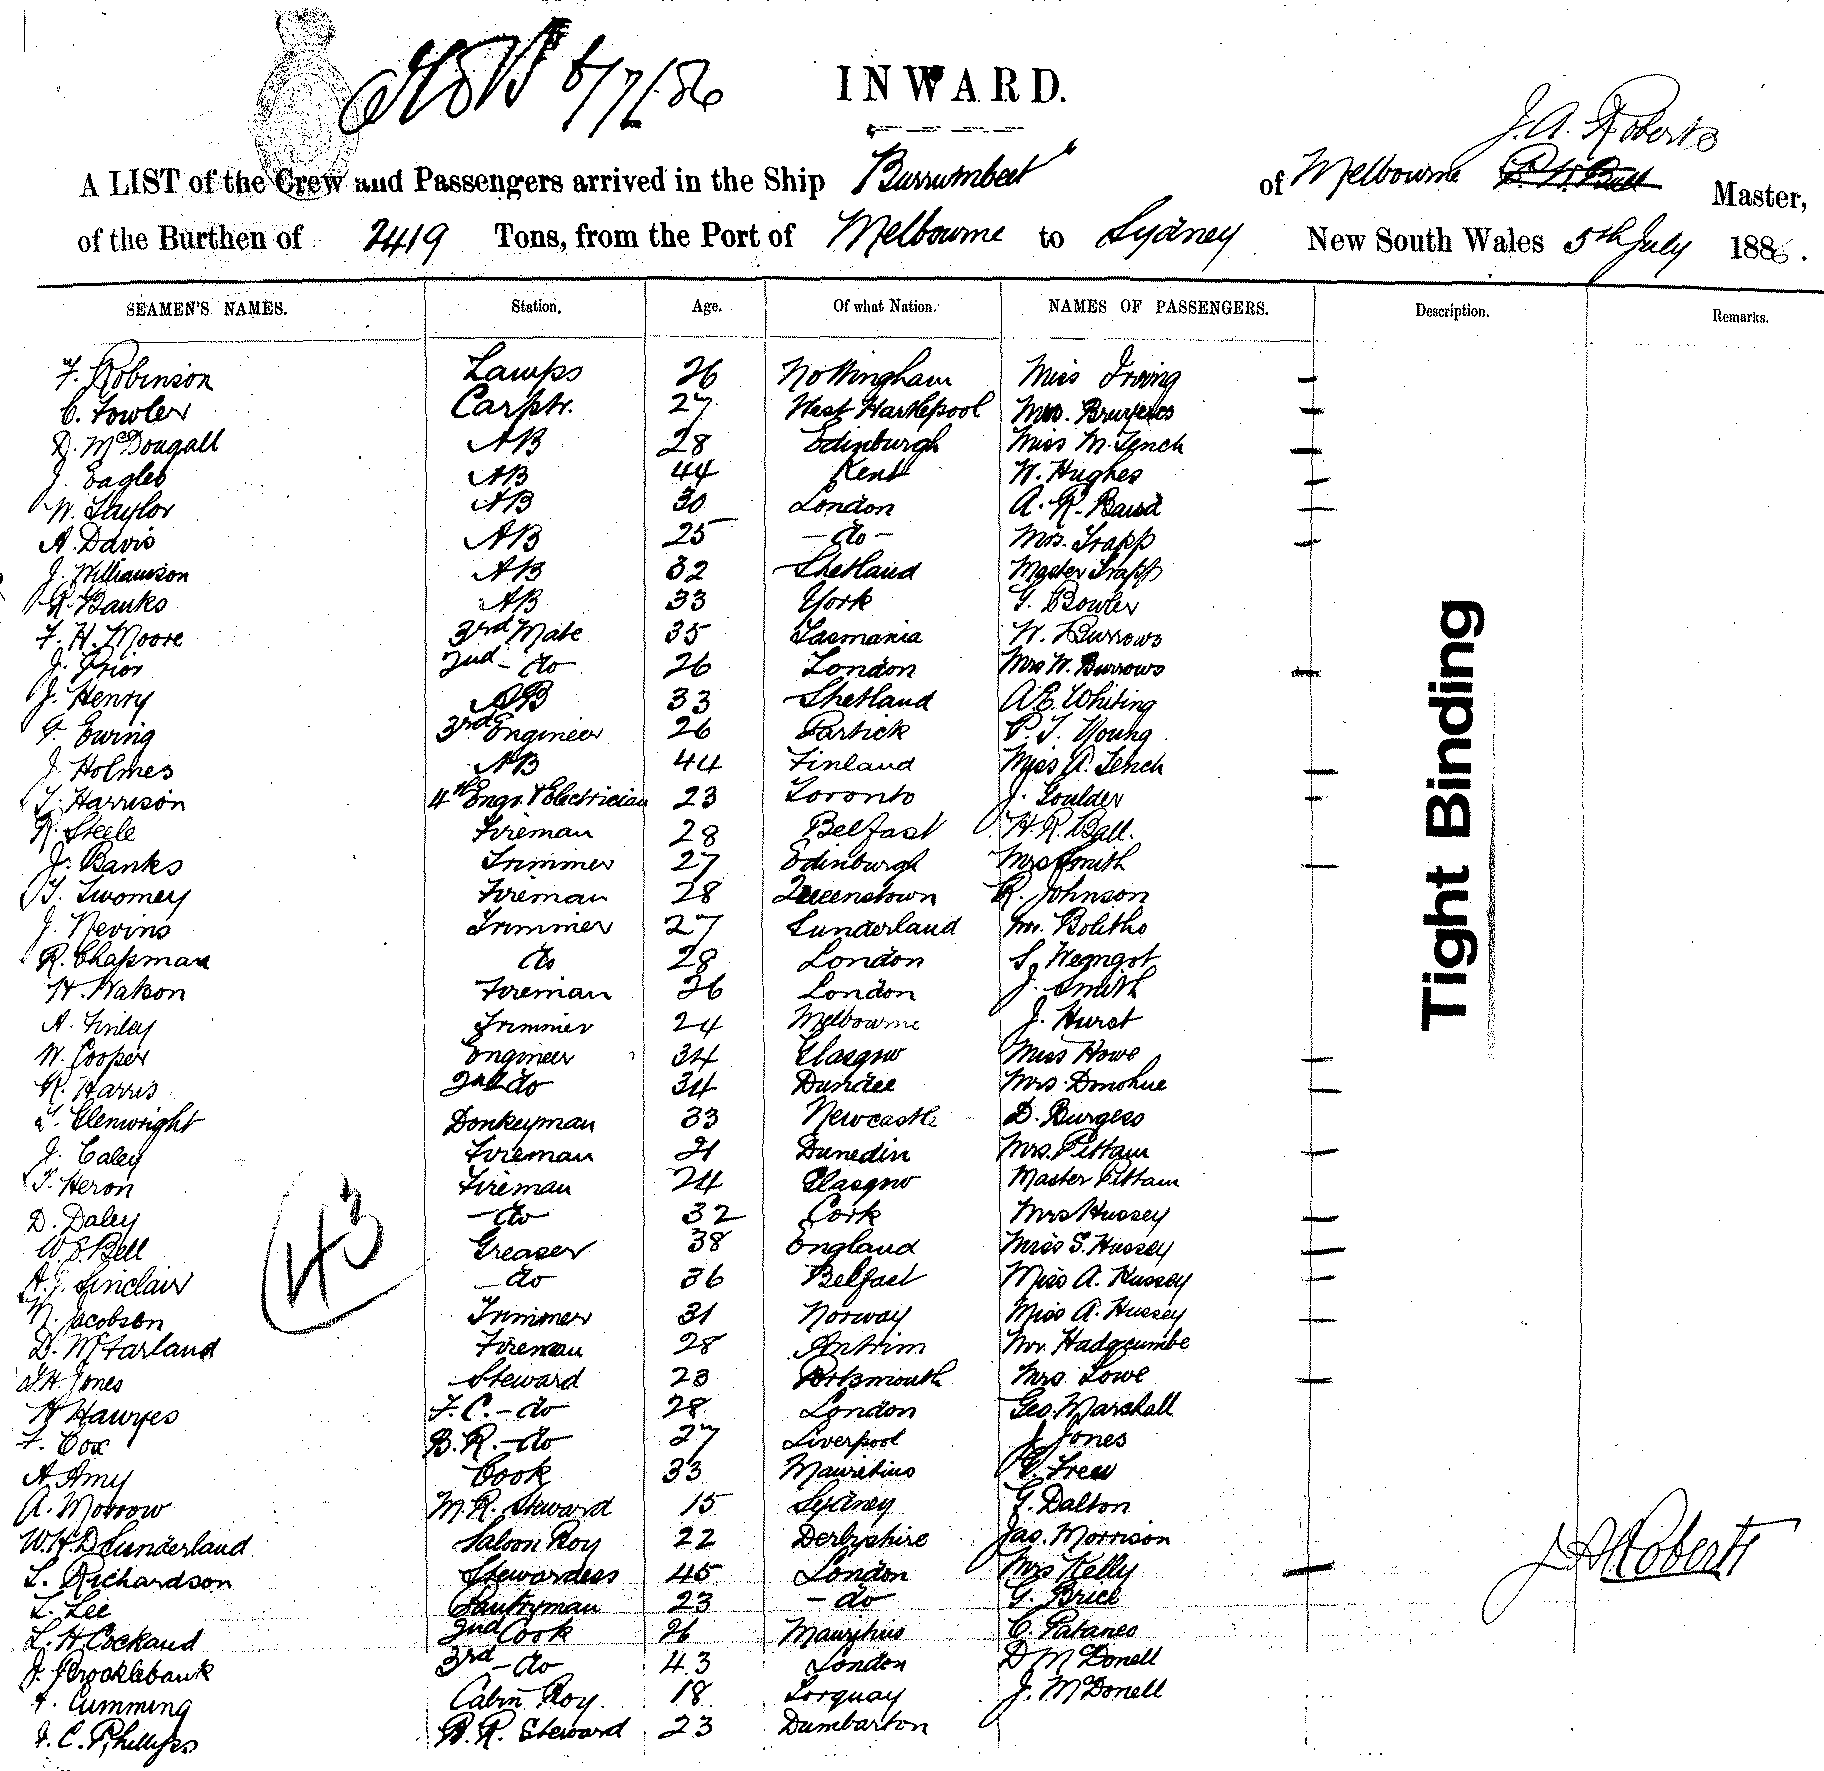 6/7/86
INWARD.
J. A. Roberts
A LIST of the Crew and Passengers arrived in the Ship Burrumbeet" of Melbourne Master,
of the Burthen of 2419 Tons, from the Port of Melbourne to Sydney New South Wales 5th July 1886.
SEAMEN'S NAMES. Station. Age. Of what Nation. NAMES OF PASSENGERS. Description. Remarks.
F. Robinson Lamps 26 Nottingham Miss Irving –
C. Fowler Carptr. 27 West Hartlepool Mrs. –
D. McDougall AB 28 Edinburgh Miss M. Tench –
J. Eagles AB 44 Kent W. Hughes –
W. Taylor AB 30 London A. R. Baird –
A. Davis AB 25 – do – Mrs. Trapp –
J. Williamson AB 32 Shetland Master Trapp
R. Banks AB 33 York G. Bowler
F. H. Moore 3rd Mate 35 Tasmania W. Burrows
J. Prior 2nd – do 26 London Mrs W. Burrows –
J. Henry AB 33 Shetland A.E. Whiting
G. Ewing 3rd Engineer 26 Partick P. T. Young
J. Holmes AB 44 Finland Miss A. Tench –
T. Harrison 4th Engr & Electrician 23 Toronto J. Goulder –
R. Steele Fireman 28 Belfast H. R. Ball.
J. Banks Trimmer 27 Edinburgh Mrs Smith –
T. Twomey Fireman 28 Queenstown R. Johnson
J. Nevins Trimmer 27 Sunderland Mr. Bolitho
R. Chapman do 28 London S.
H. Watson Fireman 26 London J. Smith
A. Finley Trimmer 24 Melbourne J. Hurst
W. Cooper Engineer 34 Glasgow Miss Howe –
R. Harris 2nd do 34 Dundee Mrs Donohue –
T. Glenwright Donkeyman 33 Newcastle D. Burgess
J. Caley Fireman 21 Dunedin Mrs. Pittam –
T. Heron Fireman 24 Glasgow Master Pittam
D. Daley – do 32 Cork Mrs Hussey –
W. S. Bell Greaser 38 England Miss S. Hussey –
A. J. Sinclair – do 36 Belfast Miss A. Hussey –
N. Jacobson Trimmer 31 Norway Miss A. Hussey –
D. McFarland Fireman 28 Antrim Mr. Hadgcumbe
J H Jones Steward 23 Portsmouth Mrs Lowe –
H Hawyes F. C. – do 28 London Geo. Marshall
F. Cox B. R. – do 27 Liverpool J Jones
A. Amy Cook 33 Mauritius G. Frew
A. Morrow M. R. Steward 15 Sydney G. Dalton
W. H. D Sunderland Saloon Boy 22 Derbyshire Jas. Morrison
L. Richardson Stewardess 45 London Mrs Kelly –
L. Lee Pantryman 23 – do G. Brice
L. H Cockaud 2nd Cook 26 Mauritius C. Patanes
J. Brocklebank 3rd – do 43 London D McDonell
F. Cumming Cabin Boy. 18 Torquay J. McDonell
F. C. Phillips B. R. Steward 23 Dumbarton
43
Tight Binding
J A Roberts